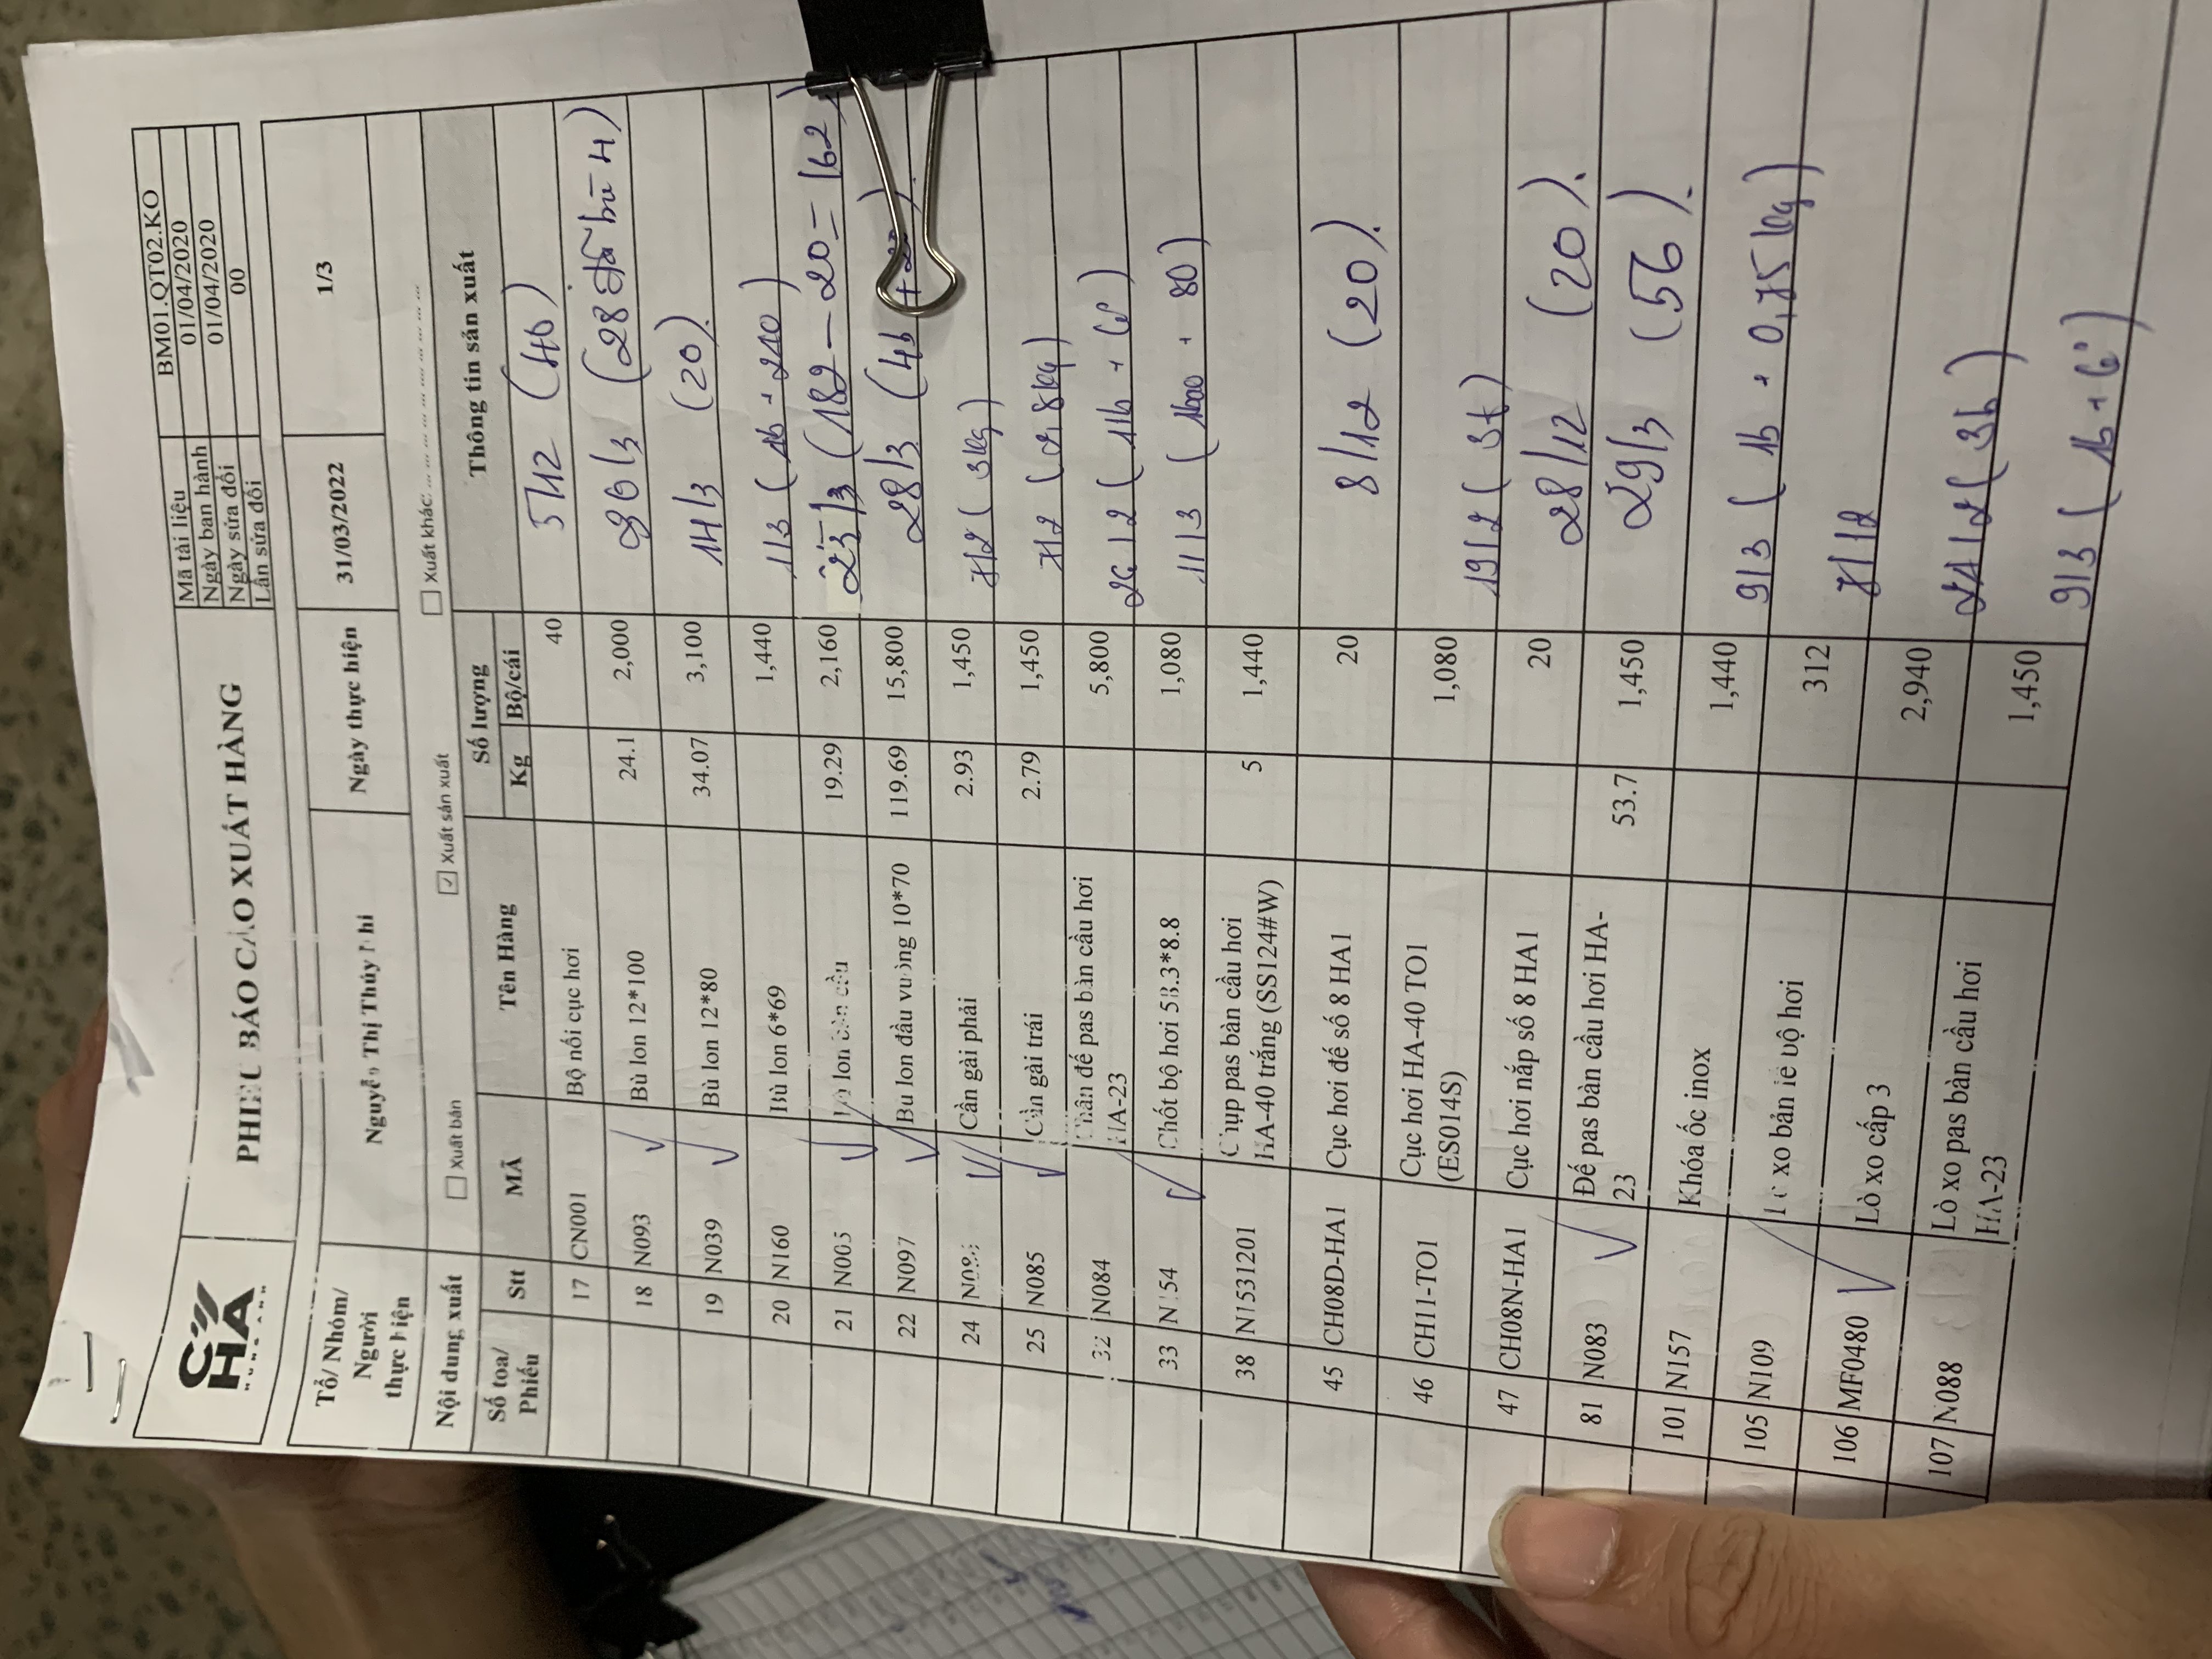 CHA
HUNG ANH
PHIẾU BÁO CÁO XUẤT HÀNG
Mã tài liệu BM01.QT02.KO
Ngày ban hành 01/04/2020
Ngày sửa đổi 01/04/2020
Lần sửa đổi 00
Tổ/ Nhóm/ Người thực hiện Nguyễn Thị Thúy Nhi Ngày thực hiện 31/03/2022 1/3
Nội dung xuất Xuất bán Xuất sản xuất Xuất khác: ... ... ... ... ... ... ... ... ...
Số toa/ Phiếu Stt MÃ Tên Hàng Số lượng Thông tin sản xuất
Kg Bộ/cái
17 CN001 Bộ nối cục hơi 40 5/12 (40)
18 N093 Bù lon 12*100 24.1 2,000 30/3 (28 đã bù 4)
19 N039 Bù lon 12*80 34.07 3,100 14/3 (20).
20 N160 Bù lon 6*69 1,440 1/3 (1b + 210)
21 N005 lon bàn cầu 19.29 2,160 23/3 (182 - 20 = 162)
22 N097 Bu lon đầu vuông 10*70 119.69 15,800 28/3 (4b
24 Cần gài phải 2.93 1,450 7/2 (3kg)
25 N085 Cần gài trái 2.79 1,450 7/2 (2,8kg)
32 N084 Chân đế pas bàn cầu hơi HA-23 5,800 26/2 (11b +
33 N154 Chốt bộ hơi 58.3*8.8 1,080 11/3 (1bao + 80)
38 N1531201 Chụp pas bàn cầu hơi HA-40 trắng (SS124#W) 5 1,440
45 CH08D-HA1 Cục hơi đế số 8 HA1 20 8/12 (20).
46 CH11-TO1 Cục hơi HA-40 TO1 (ES014S) 1,080 19/2 (3t)
47 CH08N-HA1 Cục hơi nắp số 8 HA1 20 28/12 (20).
81 N083 Đế pas bàn cầu hơi HA-23 53.7 1,450 29/3 (56).
101 N157 Khóa ốc inox 1,440 9/3 (1b + 0,75kg)
105 N109 Lò xo bản lề bộ hơi 312 7/12
106 MF0480 Lò xo cấp 3 2,940 24/2 (3b)
107 N088 Lò xo pas bàn cầu hơi HA-23 1,450 9/3 (1b +